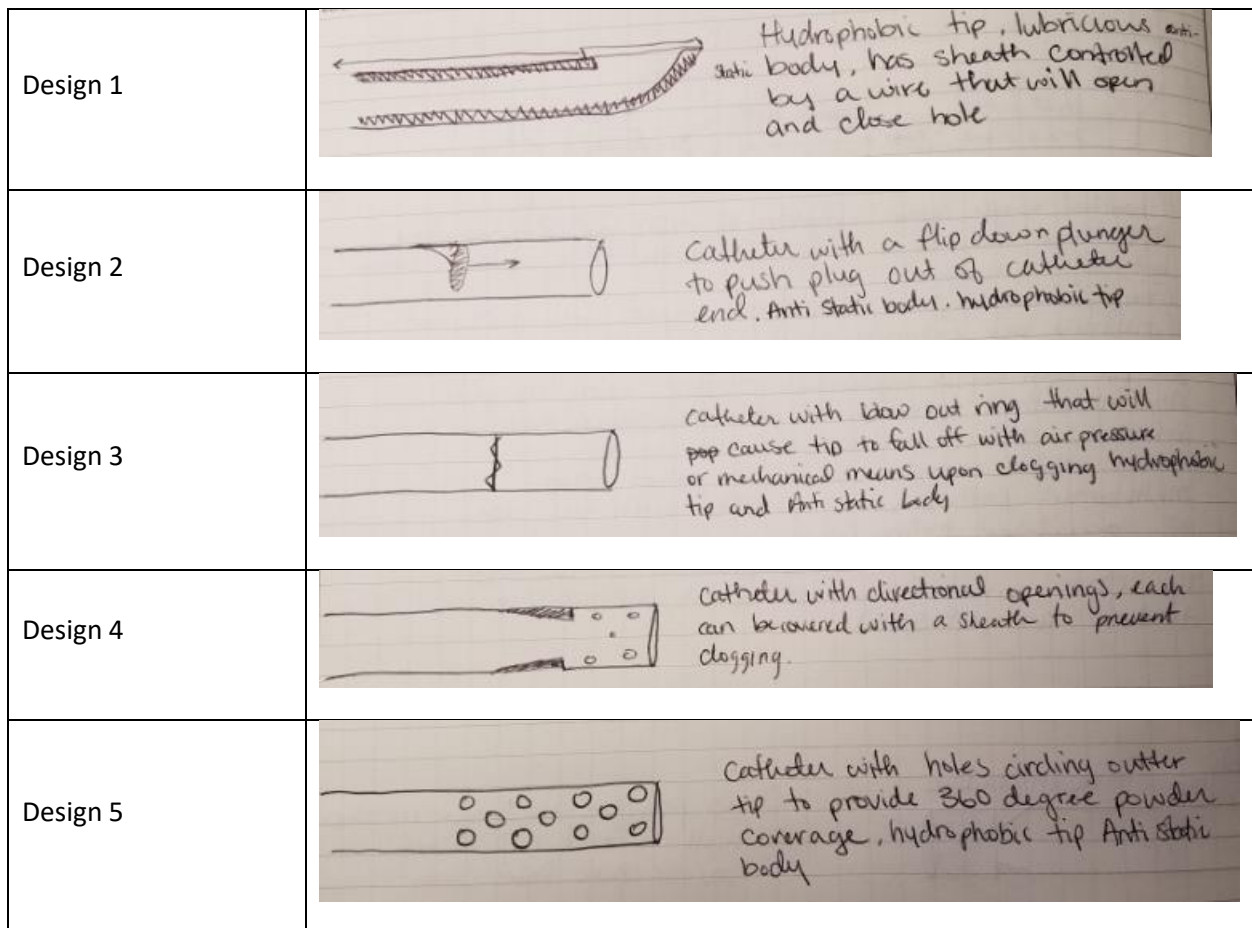 Design 1
Hydrophobic tip, lubricious anti-
static body, has sheath controlled
by a wire that will open
and close hole
Design 2
Catheter with a flip down plunger
to push plug out of catheter
end. Anti static body. hydrophobic tip
Design 3
catheter with blow out ring that will
pop cause tip to fall off with air pressure
or mechanical means upon clogging hydrophobic
tip and Anti static body
Design 4
catheter with directional openings, each
can be covered with a sheath to prevent
clogging.
Design 5
Catheter with holes circling outter
tip to provide 360 degree powder
coverage, hydrophobic tip Anti static
body